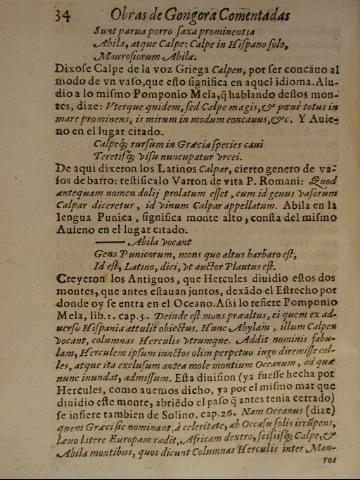 34 Obras de Gongora Comentadas
Sunt parua porro saxa prominentia
Abila, atque Calpe: Calpe in Hispano solo,
Maurosiorum Abila.
Dixose Calpe de la voz Griega Calpen, por ser concauo al
modo de vn vaso, que esto significa en aquel idioma. Alu-
dio a lo mismo Pomponio Mela, q̃ hablando destos mon-
tes, dize: Vterque quidem, sed Calpe magis, & pœni totus in
mare prominens, is mirum in modum concauus, &c. Y Auie-
no en el lugar citado.
Calpeq́; rursum in Græcia species caui
Teretisq́; visu nuncupatur vrcei.
De aqui dixeron los Latinos Calpar, cierto genero de va-
sos de barro: testificalo Varron de vita P. Romani: Quod
antequam nomen dolij prolatum esset, cum id genus vasorum
Calpar diceretur, id vinum Calpar appellatum. Abila en la
lengua Punica, significa monte alto, consta del mismo
Auieno en el lugar citado.
—— Abila vocant
Gens Punicorum, mons quo altus barbaro est,
Id est, Latino, dici, vt auctor Plautus est.
Creyeron los Antiguos, que Hercules diuidio estos dos
montes, que antes estauan juntos, dexado el Estrecho por
donde oy se entra en el Oceano. Assi lo refiere Pomponio
Mela, lib. 1. cap. 5. Deinde est mons præaltus, ei quem ex ad-
uerso Hispania attulit obiectus. Hunc Abylam, illum Calpen
vocant, columnas Herculis vtrumque. Addit nominis fabu-
lam, Herculem ipsum iunctos olim perpetuo iugo diremisse col-
les, atque ita exclusum antea mole montium Oceanum, ad quæ
nunc inundat, admissum. Esta diuision (ya fuesse hecha por
Hercules, como auemos dicho, ya por el mismo mar que
diuidio este monte, abriẽdo el paso q̃ antes tenia cerrado)
se infiere tambien de Solino, cap. 26. Nam Oceanus (dize)
quem Græci sic nominant, à celeritate, ab Occasu solis irrũpens,
læuo litere Europam radit, Africam dextro, scissisq́; Calpe, &
Abila montibus, quos dicunt Columnas Herculis inter Mau-
ros